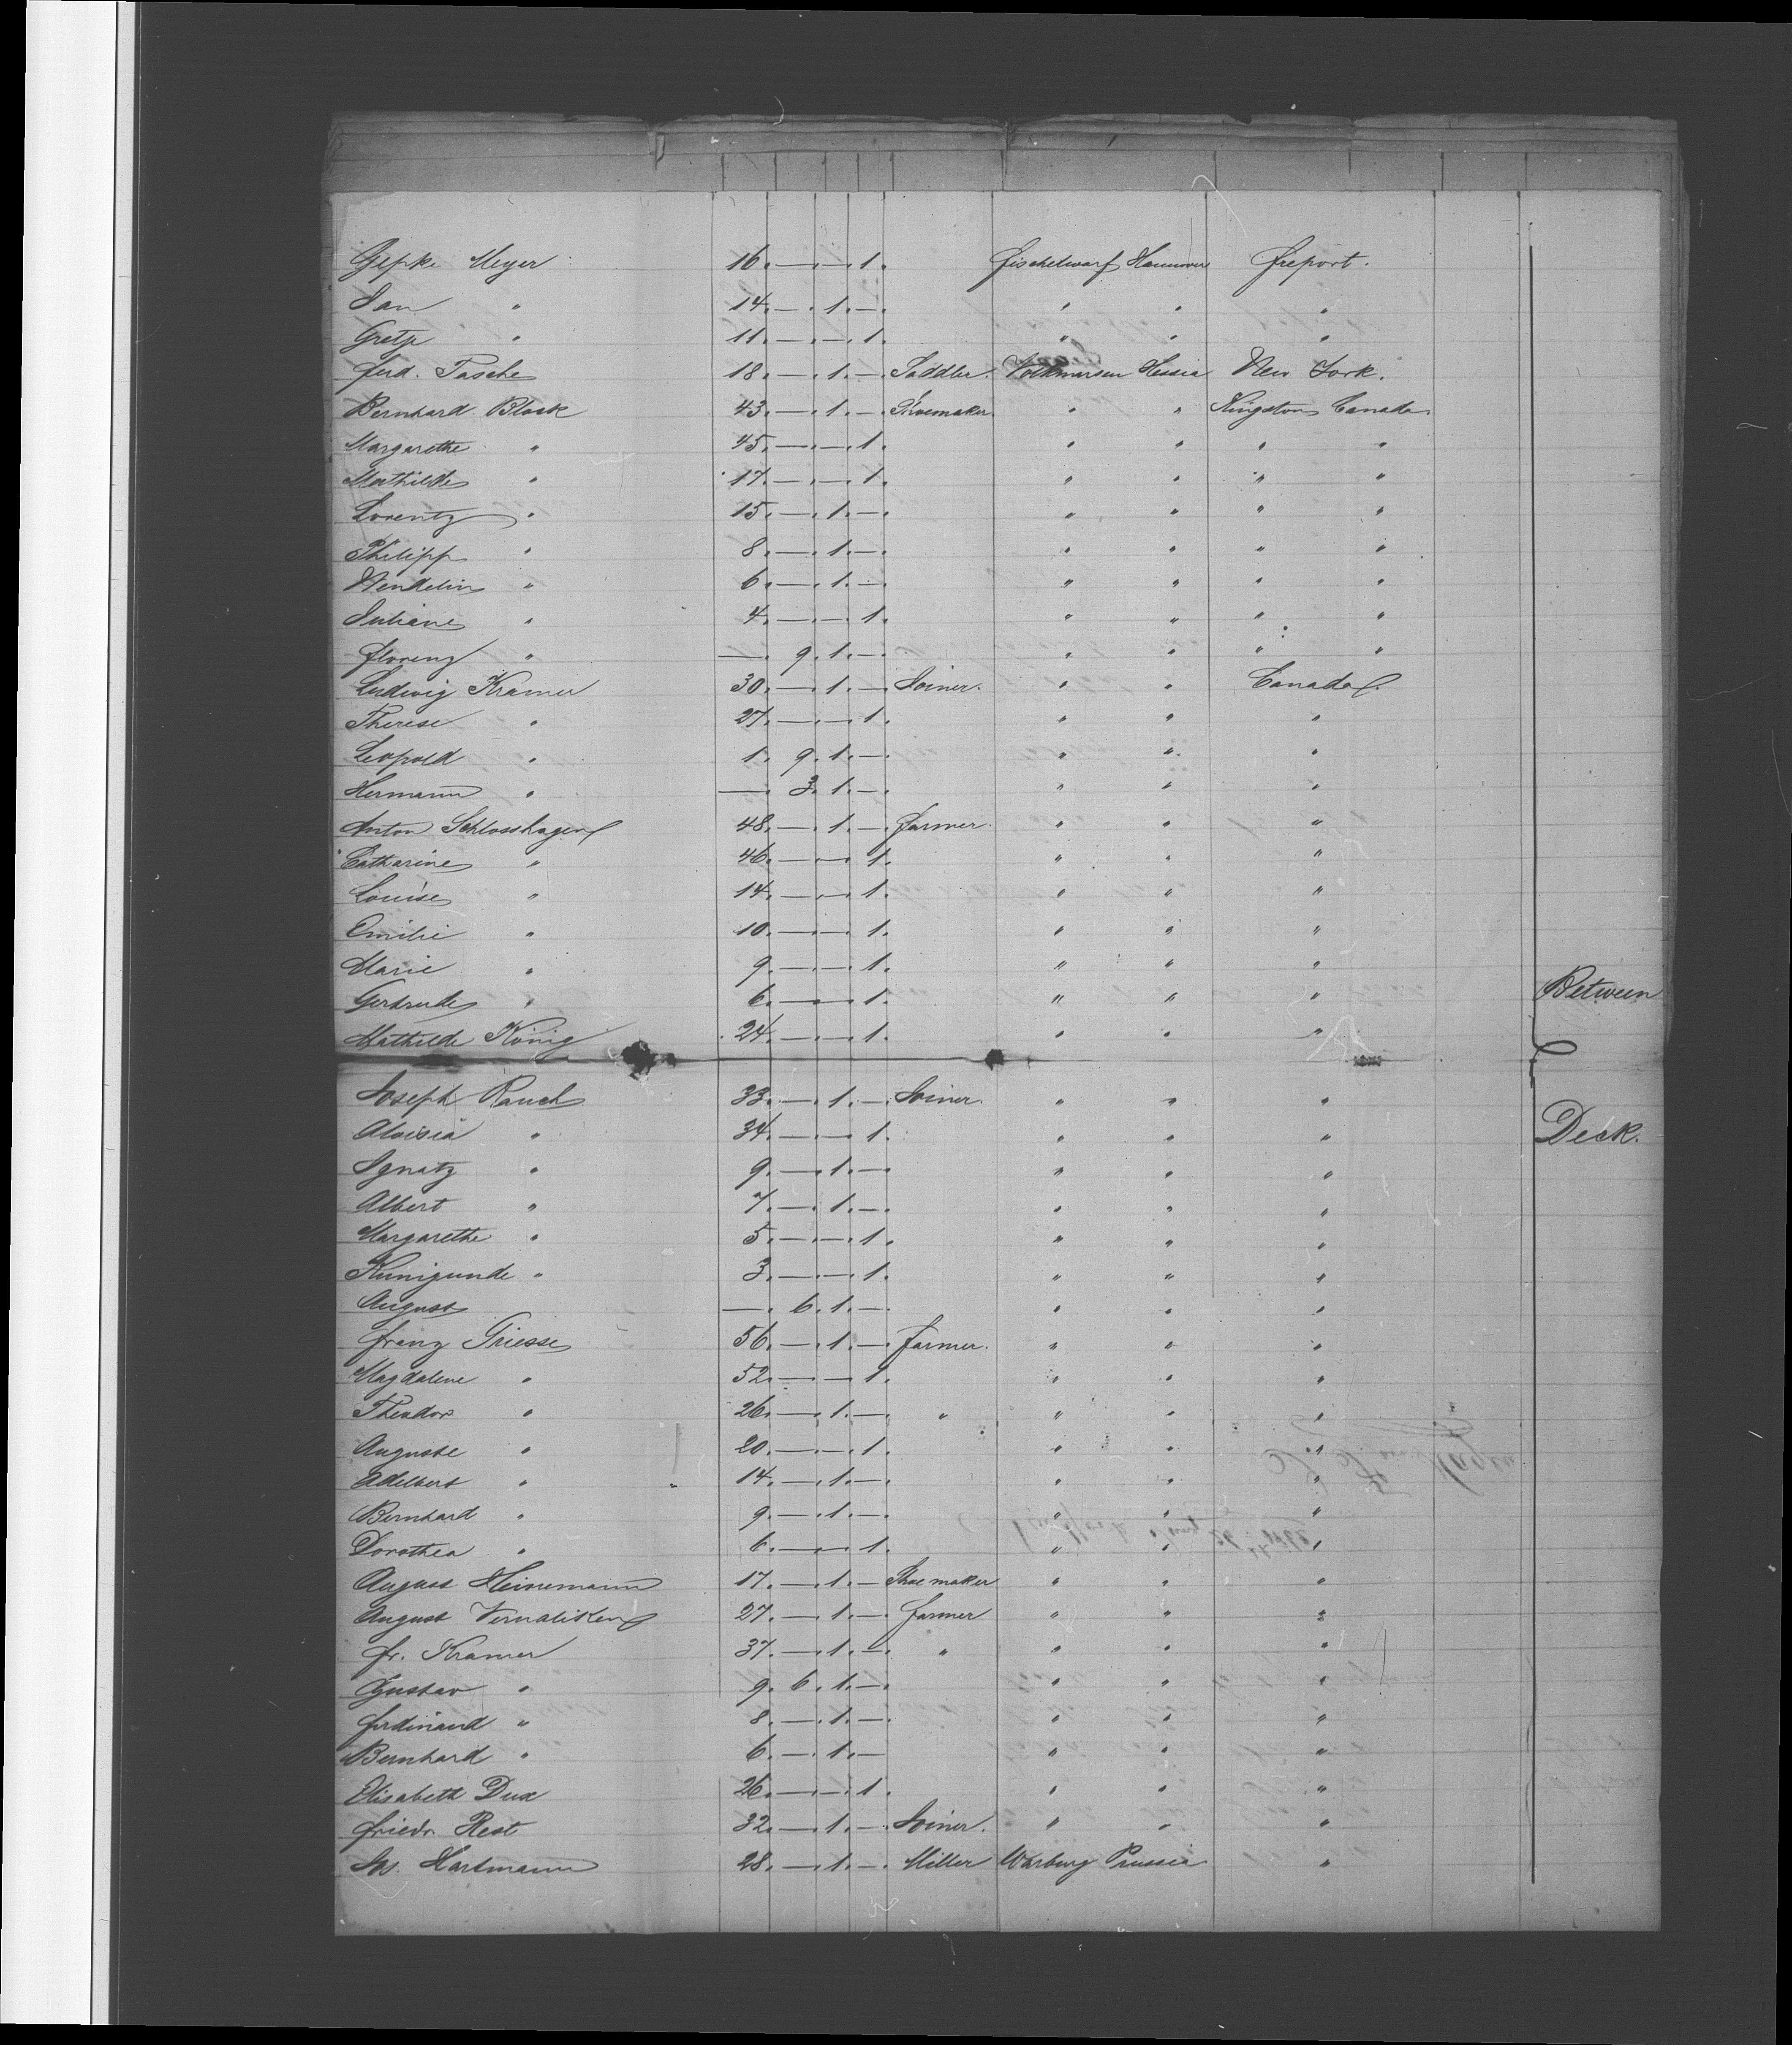 Gepke Meyer 16. — . — . 1. Fischelwarf Hannover Freeport.
Jan " 14. — . 1. — . " " "
Gretje " 11. — . — . 1. " " "
Ferd. Tasche 18. — . 1. — . Saddler. Volkmarsen Hessia New York.
Bernhard Block 43. — . 1. — . Shoemaker " " Kingston Canada
Margarethe " 45. — . — . 1. " " " "
Mathilde " 17. — . — . 1. " " " "
Lorentz " 15. — . 1. — . " " " "
Philipp " 8. — . 1. — . " " " "
Wendelin " 6. — . 1. — . " " " "
Juliane " 4. — . — . 1. " " " "
Florenz " — . 9. 1. — . " " " "
Ludwig Kramer 30. — . 1. — . Joiner. " " Canada.
Therese " 27. — . — . 1. " " "
Leopold " 1. 9. 1. — . " " "
Hermann " — . 3. 1. — . " " "
Anton Schlosshagen 48. — . 1. — . Farmer. " " "
Catharine " 46. — . — . 1. " " "
Louise " 14. — . — . 1. " " "
Emilie " 10. — . — . 1. " " "
Marie " 9. — . — . 1. " " "
Gertrude " 6. — . — . 1. " " " Between
Mathilde König 24. — . — . 1. " " "
Joseph Rauch 33. — . 1. — . Joiner. " " "
Aloisia " 34. — . — . 1. " " " Deck.
Ignatz " 9. — . 1. — . " " "
Albert " 7. — . 1. — . " " "
Margarethe " 5. — . — . 1. " " "
Kunigunde " 3. — . — . 1. " " "
August — . 6. 1. — . " " "
Franz Griesse 56. — . 1. — . Farmer. " " "
Magdalene " 52. — . — . 1. " " "
Theodor " 26. — . 1. — . " " " "
Auguste " 20. — . — . 1. " " "
Adelbert " 14. — . 1. — . " " "
Bernhard " 9. — . 1. — . " " "
Dorothea " 6. — . — . 1. " " "
August Heinemann 17. — . 1. — Shoemaker " " "
August Vernaliken 27. — . 1. — . Farmer " " "
Fr. Kramer 37. — . 1. — . " " " "
Gustav " 9. 6. 1. — . " " "
Ferdinand " 8. — . 1. — . " " "
Bernhard " 6. — . 1. — " " "
Elisabeth Dux 26. — . — . 1. " " "
Friedr. Rest 32. — . 1. — . Joiner. " " "
Jos. Hartmann 28. — . 1. — . Miller Warburg Prussia "